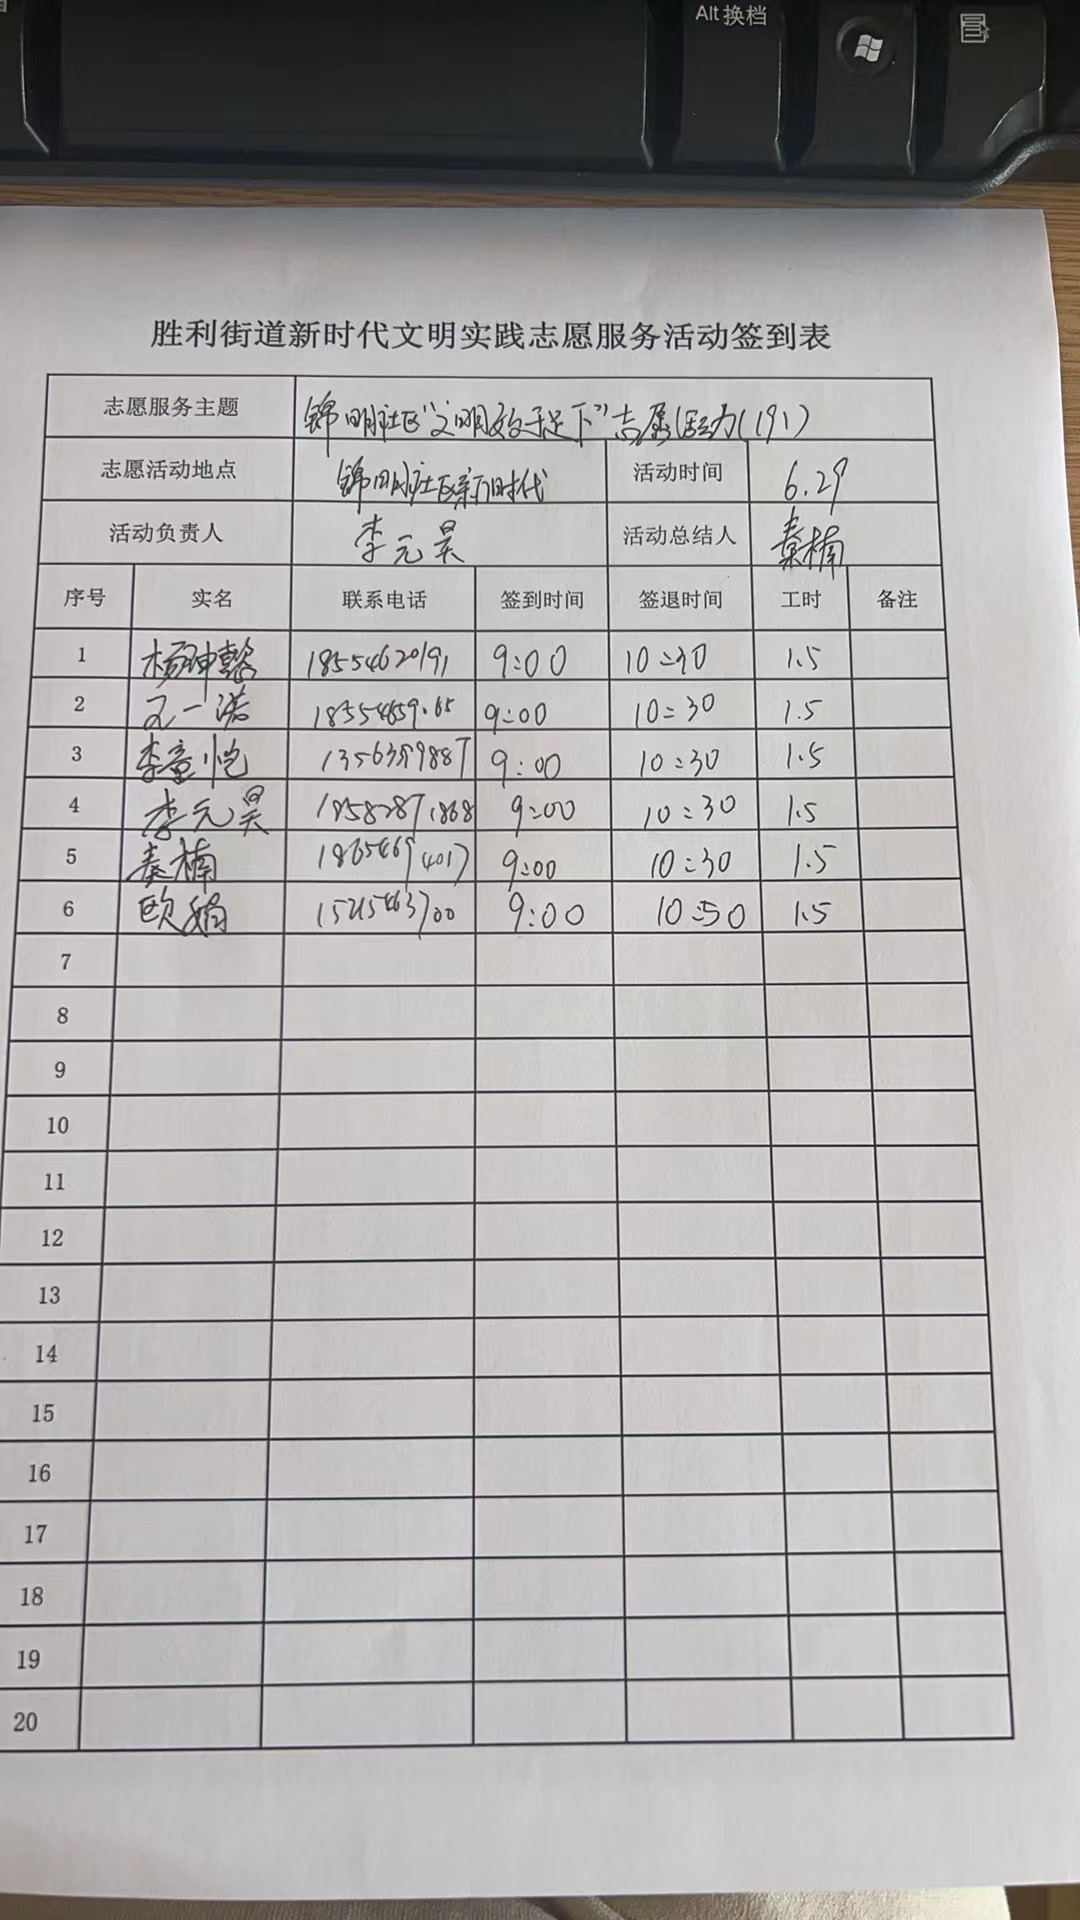 Alt 换档
胜利街道新时代文明实践志愿服务活动签到表
志愿服务主题 锦明社区“文明 于足下”志愿活动(191)
志愿活动地点 锦明社区新时代 活动时间 6.29
活动负责人 李元昊 活动总结人 秦楠
序号 实名 联系电话 签到时间 签退时间 工时 备注
1 杨珅懿 18554620191 9:00 10:30 1.5
2 一诺 9:00 10:30 1.5
3 李童恺 13563599887 9:00 10:30 1.5
4 李元昊 18582871868 9:00 10:30 1.5
5 秦楠 18654694017 9:00 10:30 1.5
6 欧娟 15215463700 9:00 10:50 1.5
7
8
9
10
11
12
13
14
15
16
17
18
19
20